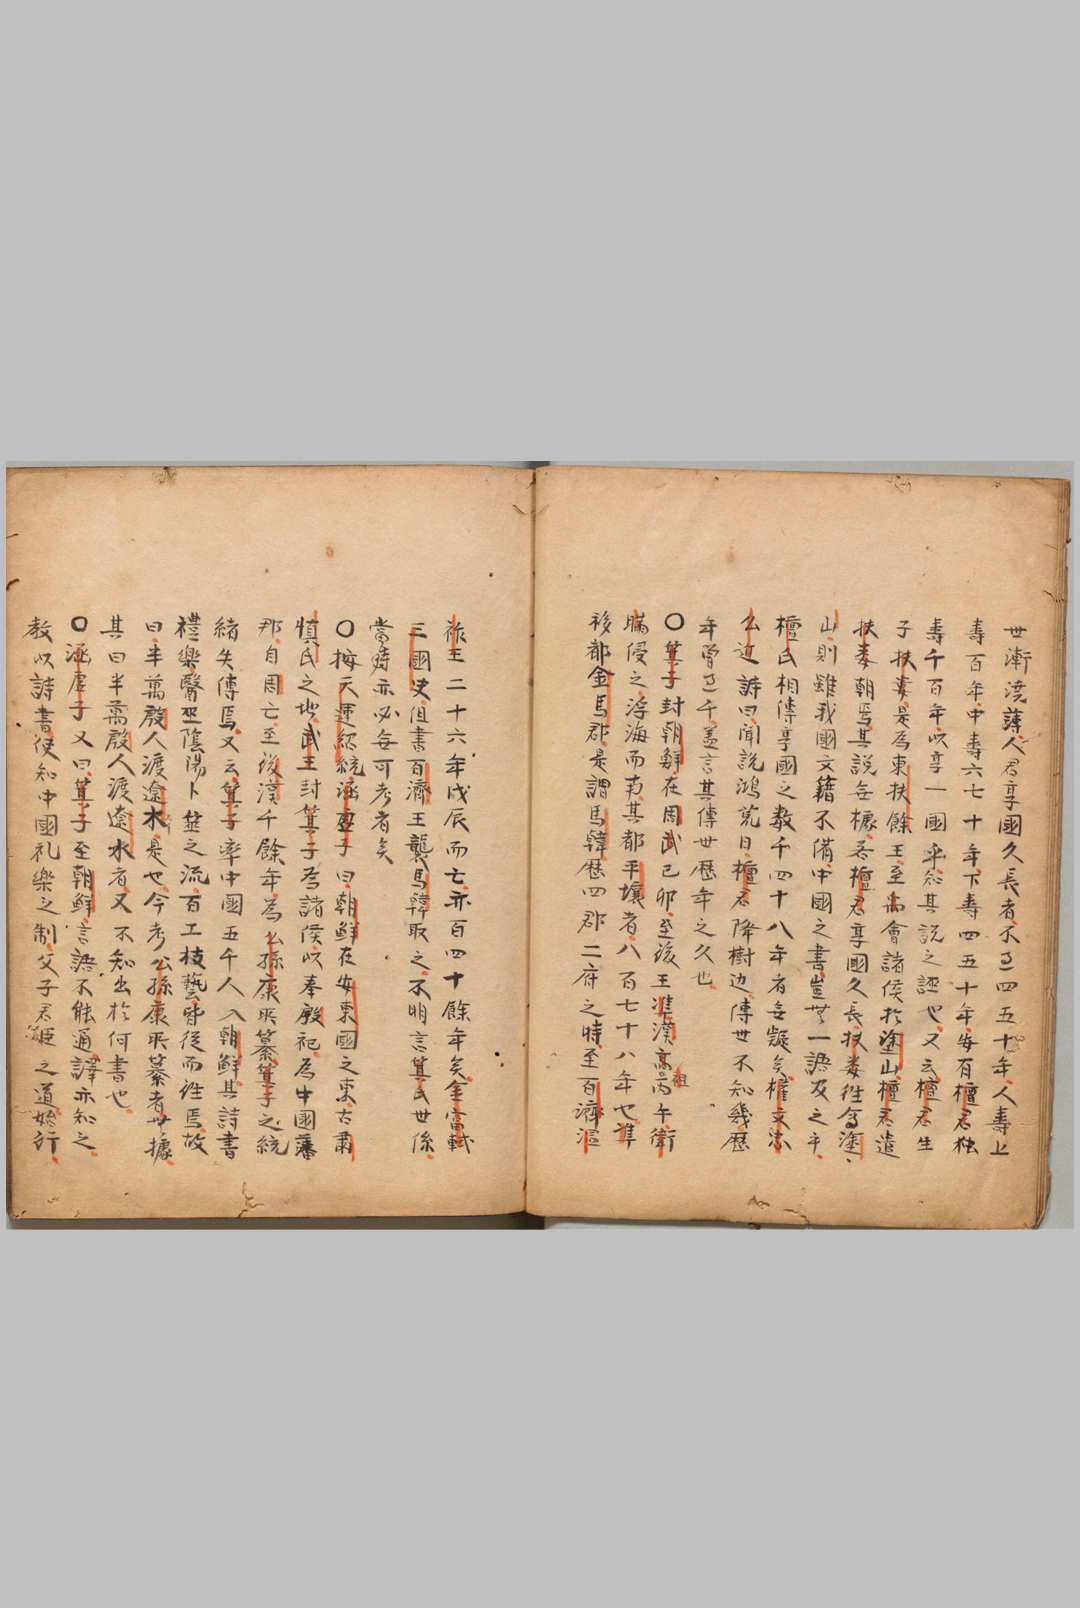 世漸澆薄人君享國久長者不過四五十年人壽上
壽百年中壽六七十年下壽四五十年安有檀君独
壽千百年以享一國乎知其說之誣也又云檀君生
子扶婁是爲東扶餘王至禹會諸侯於塗山檀君遣
扶婁朝焉其說無據若檀君享國久長扶婁徃會塗
山則雖我國文籍不備中國之書豈無一語及之乎
檀氏相傳享國之数千四十八年者無疑矣權文忠
公近詩曰聞說鴻荒日檀君降樹边傳世不知幾歷
年曾過千盖言其傳世歷年之久也
○箕子封朝鮮在周武己卯至後王準漢高祖丙午衛
瞞侵之浮海而南其都平壤者八百七十八年也準
移都金馬郡是謂馬韓歷四郡二府之時至百濟溫
祚王二十六年戊辰而亡亦百四十餘年矣金富軾
三國史但書百濟王襲馬韓取之不明言箕氏世係
當時亦必每可考者矣
○按天運紹統涵虛子曰朝鮮在安東國之東古肅
愼氏之地武王封箕子爲諸侯以奉殷祀爲中國藩
邦自周亡至後漢千餘年爲公孫康所篡箕子之統
緖失傳焉又云箕子率中國五千人入朝鮮其詩書
禮樂醫巫陰陽卜筮之流百工枝藝皆從而徃焉故
曰半萬殷人渡遼水是也今考公孫康所篡者無據
其曰半萬殷人渡遼水者又不知出於何書也
○涵虛子又曰箕子至朝鮮言語不能通譯亦知之
敎以詩書使知中國礼樂之制父子君臣之道始行